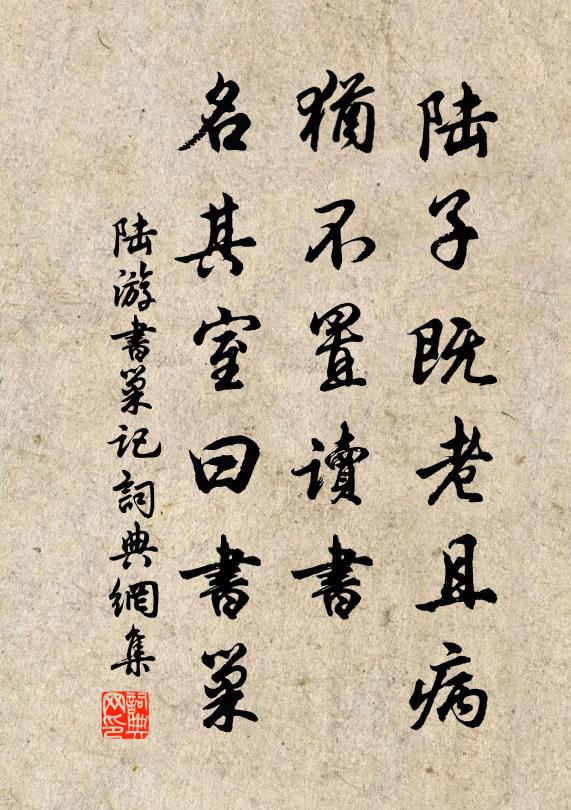 陆子既老且病
猶不置讀書
名其室曰書巢
陆游書巢记詞典網集
詞典
网印